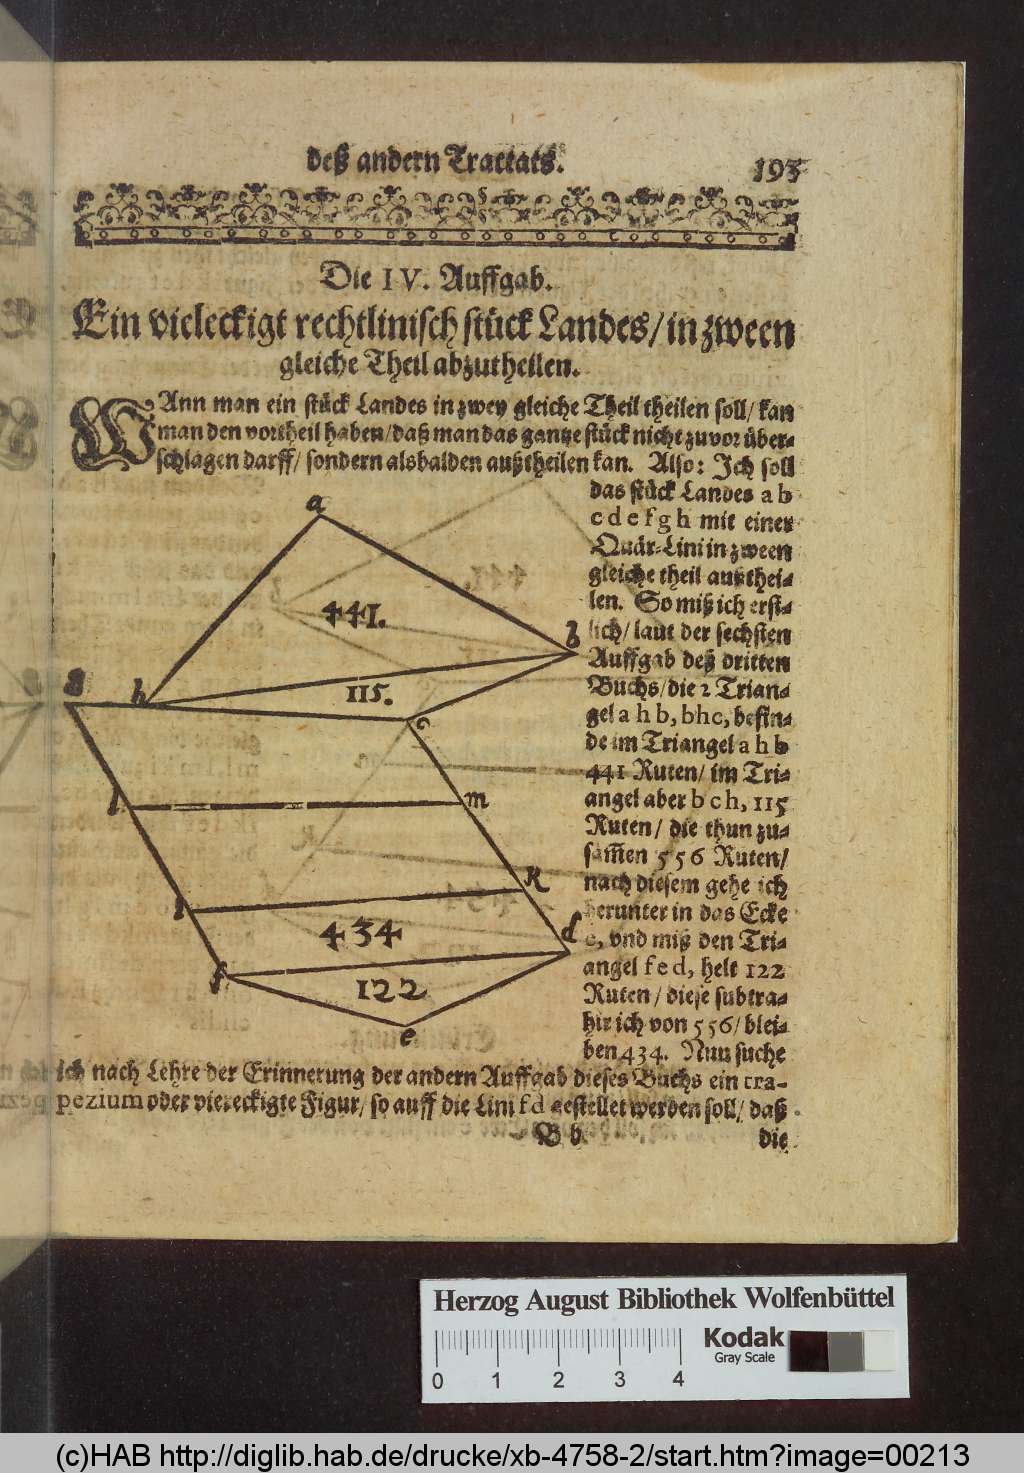 deß andern Tractats. 193
Die IV. Auffgab.
Ein vieleckigt rechtlinisch stück Landes/ in zween
gleiche Theil abzutheilen.
WAnn man ein stück Landes in zwey gleiche Theil theilen soll/ kan
man den vortheil haben/ daß man das gantze stück nicht zuvor über-
schlagen darff/ sondern alsbalden außtheilen kan. Also: Ich soll
das stück Landes a b
c d e f g h mit einer
Quär-Lini in zween
gleiche theil außthei-
len. So miß ich erst-
lich/ laut der sechsten
Auffgab deß dritten
Buchs/ die 2 Trian-
gel a h b, b h c, befin-
de im Triangel a h b
441 Ruten/ im Tri-
angel aber b c h, 115
Ruten/ die thun zu-
sam̃en 556 Ruten/
nach diesem gehe ich
herunter in das Ecke
e, vnd miß den Tri-
angel f e d, helt 122
Ruten/ diese subtra-
hir ich von 556/ blei-
ben 434. Nun suche
ich nach Lehre der Erinnerung der andern Auffgab dieses Buchs ein tra-
pezium oder viereckigte Figur/ so auff die Lini f d gestellet werden soll/ daß
B b die
a
441.
b
g h
115.
c
l m
i K
434 d
f
122
e
Herzog August Bibliothek Wolfenbüttel
Kodak
Gray Scale
0 1 2 3 4
(c)HAB http://diglib.hab.de/drucke/xb-4758-2/start.htm?image=00213